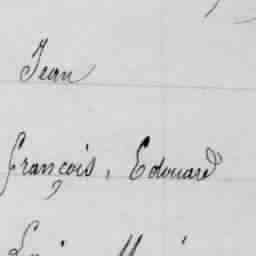 Jean
François, Edouard